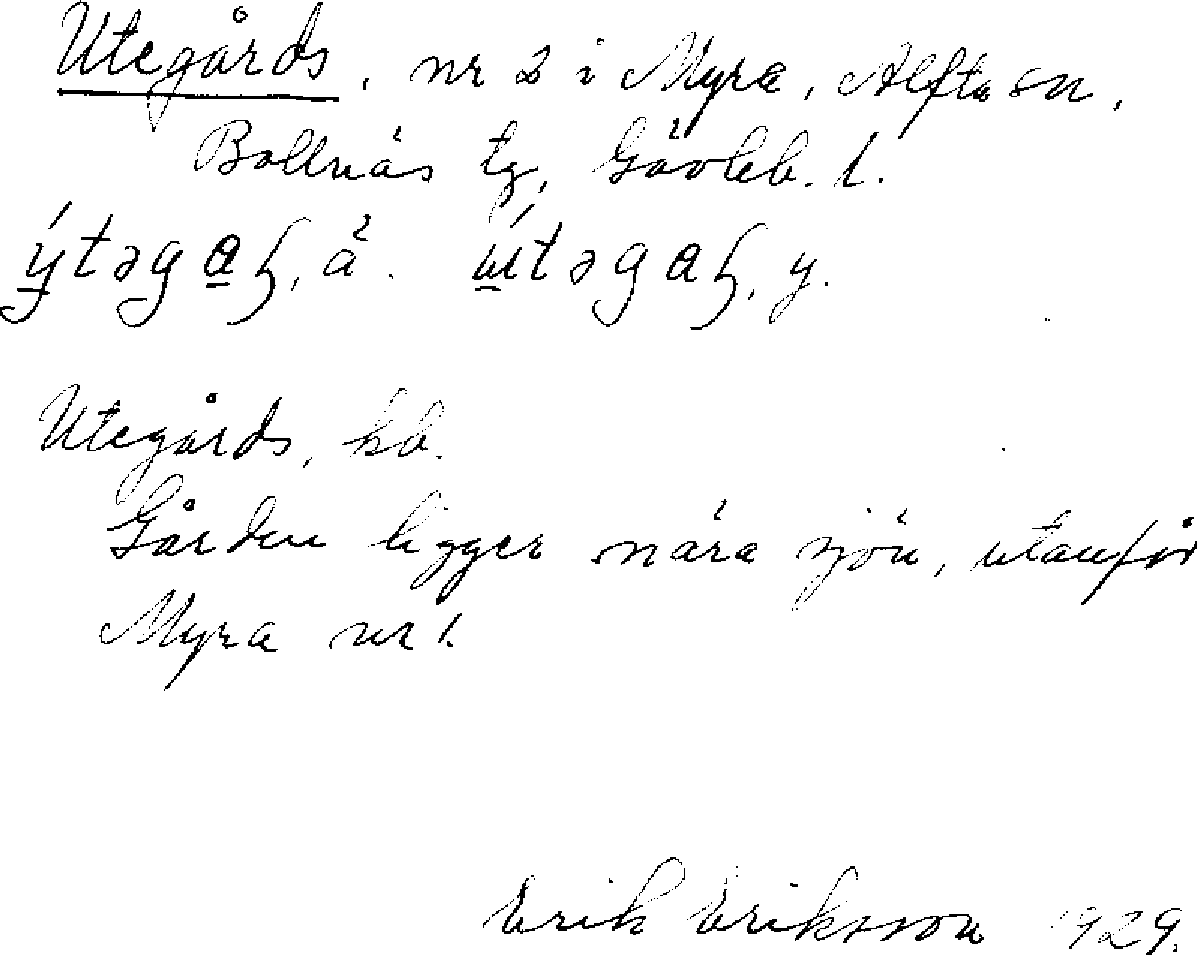 Utegårds, nr 2 i Myra, Alfta sn,
Bollnäs tg, Gävleb. l.
Utegårds, kb.
Gården ligger nära sjön, utanför
Myra nr 1.
Erik Eriksson 1929.